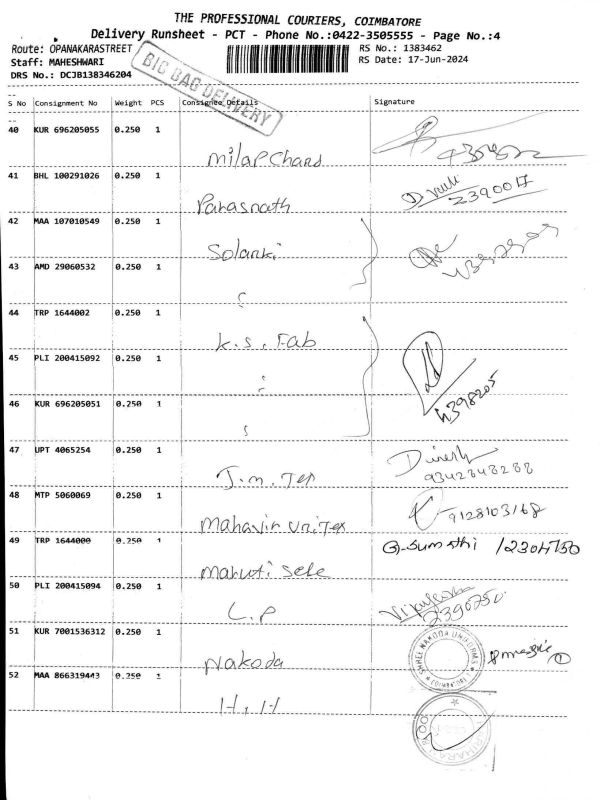 THE PROFESSIONAL COURIERS, COIMBATORE
Delivery Runsheet - PCT - Phone No.:0422-3505555 - Page No.:4
Route: OPANAKARASTREET
RS No.: 1383462
Staff: MAHESHWARI
RS Date: 17-Jun-2024
DRS No.: DCJB138346204
BIG BAG DELIVERY
S No Consignment No Weight PCS Consignee Details Signature
40 KUR 696205055 0.250 1
Milap Chand
41 BHL 100291026 0.250 1
Parasnath
2390017
42 MAA 107010549 0.250 1
Solanki
43 AMD 29060532 0.250 1
44 TRP 1644002 0.250 1
K.S. Fab
45 PLI 200415092 0.250 1
46 KUR 696205051 0.250 1
4398205
47 UPT 4065254 0.250 1
J.M. Tex
Dinesh
9342848288
48 MTP 5060069 0.250 1
Mahavir Uni Tex
9128103168
49 TRP 1644000 0.250 1
Maruti Sele
G-Sumathi /2304750
50 PLI 200415094 0.250 1
L.P
2390750
51 KUR 7001536312 0.250 1
Nakoda
SHREE NAKODA UNIFORMS
COIMBATORE
52 MAA 866319443 0.250 1
H.H